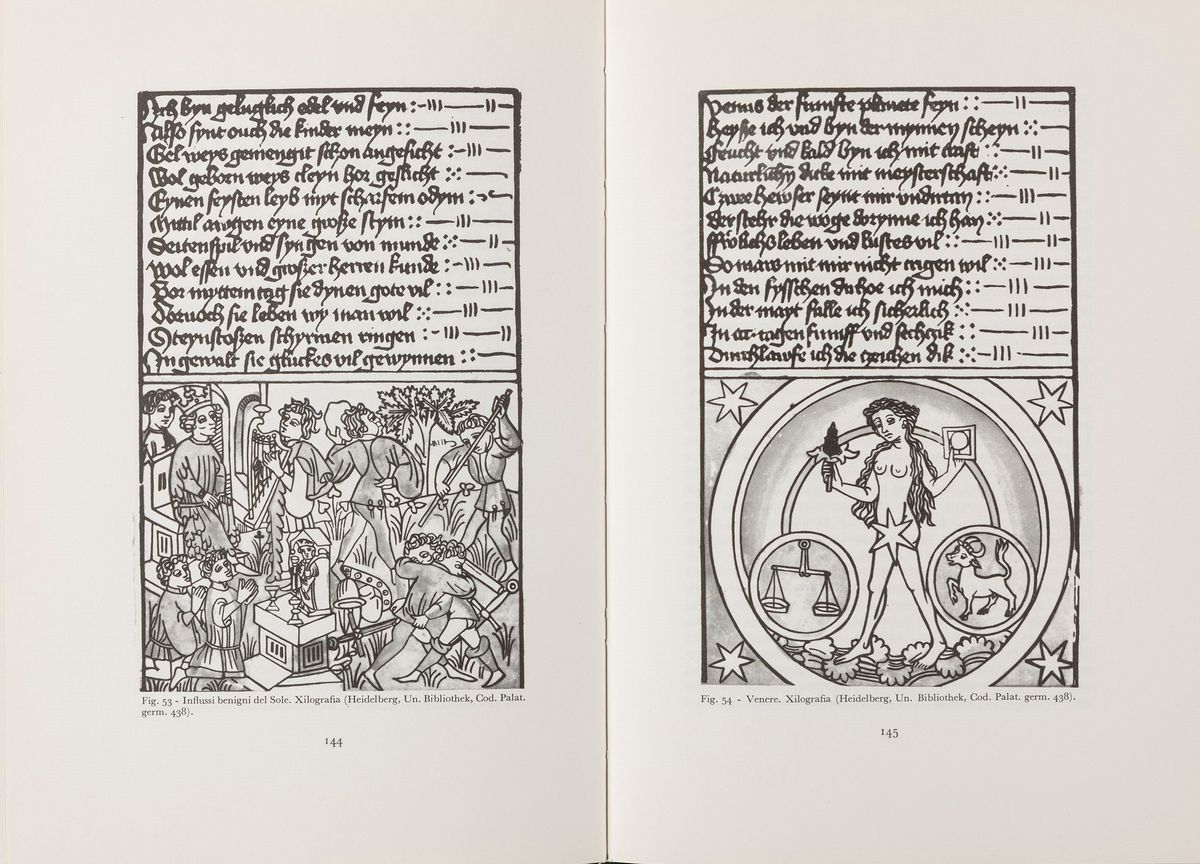 Ich byn geluglich edel vnd feyn
Also synt ouch die kinder meyn
Gel weys gemengit schon angesicht
Wol geborn weys cleyn hor geslicht
Eynen feysten leyb myt scharfem odym
Mittil awgen eyne große stym
Seitenspil vnd syngen von munde
Wol essen vnd großer herren kunde
Vor myttem tag sie dynen gote vil
Dornoch sie leben wy man wil
Steynstoßen schyrmen ringen
In gewalt sie gluckes vil gewynnen
Fig. 53 - Influssi benigni del Sole. Xilografia (Heidelberg, Un. Bibliothek, Cod. Palat.
germ. 438).
144
Venus der funfte planete feyn
Heyße ich vnd byn der mynnen scheyn
Feucht vnd kald byn ich mit craft
Naturlichn dicke mit meysterschaft
Czwee hewser seynt mir vndirtan
der stehr die woge dorynne ich han
ffrolichs leben vnd lustes vil
So mars mit mir nicht crigen wil
In den fysschen dohoe ich mich
In der mayt falle ich sicherlich
In tagen funiff vnd sechczik
Durchlawfe ich die czeichen dik
Fig. 54 - Venere. Xilografia (Heidelberg, Un. Bibliothek, Cod. Palat. germ. 438).
145